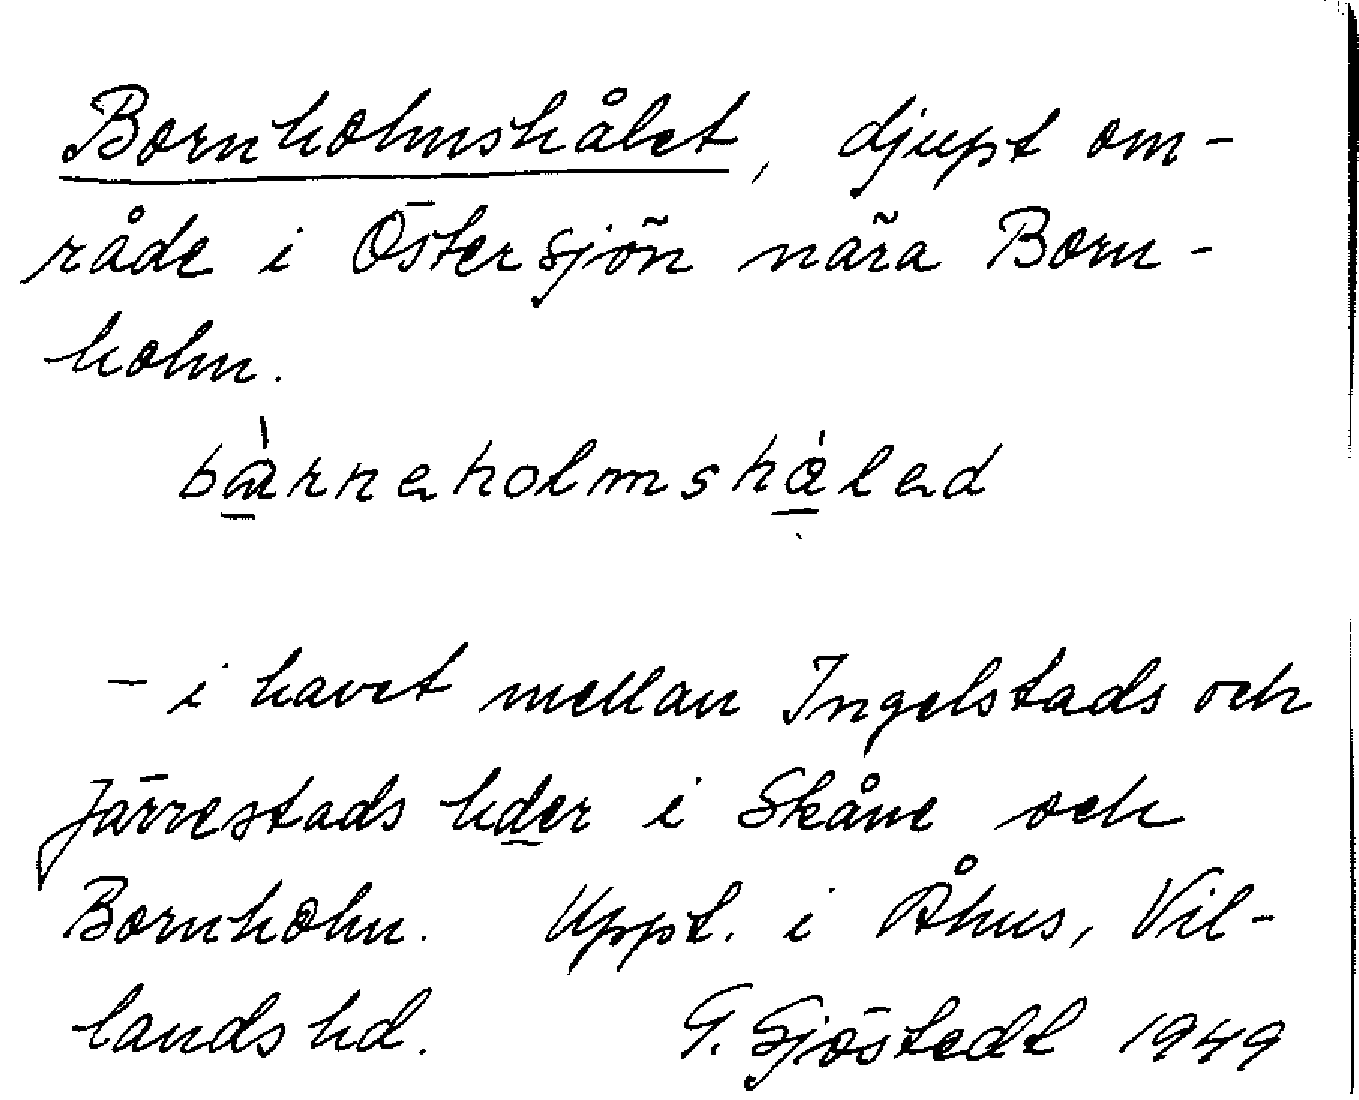 Bornholmshålet, djupt om-
råde i Östersjön nära Born-
holm.
- i havet mellan Ingelstads och
Järrestads hder i Skåne och
Bornholm. Uppt. i Åhus, Vil-
lands hd. G. Sjöstedt 1949